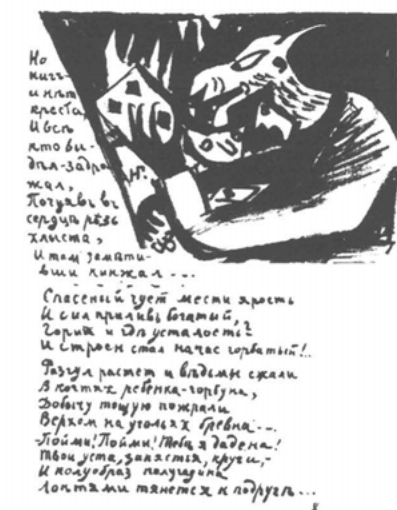 Но
нигъ-
и нѣт
креста,
И всѣ
кто ви-
дѣл-задро
жал,
Почуявъ въ
сердца рѣзь
хлыста,
И там замѣти-
вши кинжал...
Спасеный чует мести ярость
И сил приливъ богатый,
Горит и гдѣ усталость?
И строен стал на час горбатый!..
Разгул растет и вѣдьмы сжали
В когтях ребенка-горбуна,
Добычу тощую пожрали
Верхом на угольях бревна...
-Пойми! Пойми! Тебѣ я дадена!
Твои уста, запястья, круги,-
И полуобраз полугадина
локтями тянется к подругѣ...
8